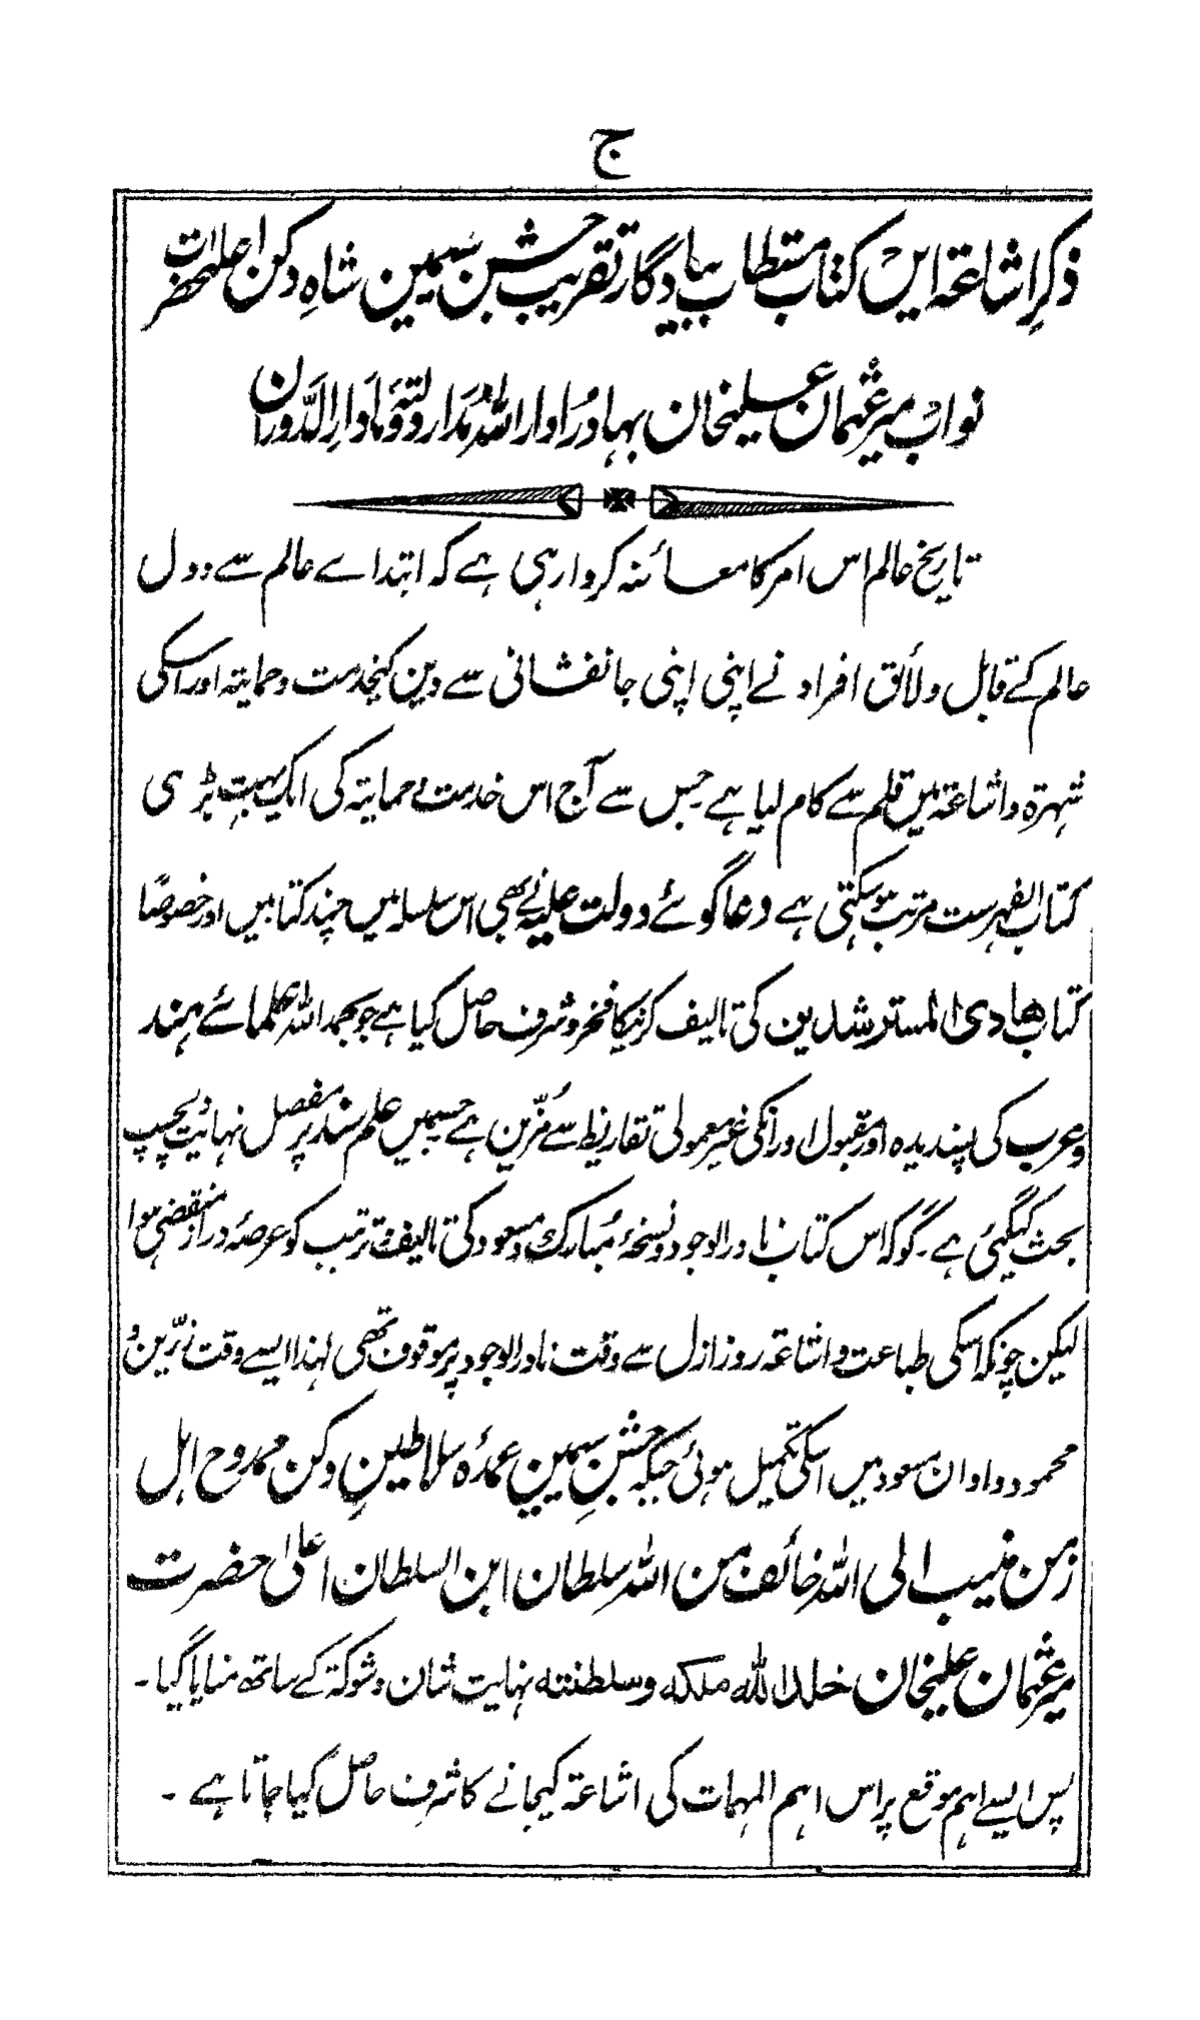 ج
ذکرِ اشاعۃ ایں کتاب مستطاب بیادگار تقریب جشن سیمین شاہِ دکن اعلٰحضرت
نواب میر عثمان علیخان بہادر ادار اللہ مدار دولتہ و مادار الدوران
تاریخ عالم اس امر کا معائنہ کروا رہی ہے کہ ابتداے عالم سے دول
عالم کے قابل ولائق افراد نے اپنی اپنی جانفشانی سے دین کیخدمت وحمایتہ اور اسکی
شہرۃ و اشاعۃ میں قلم سے کام لیا ہے جس سے آج اس خدمت و حمایتہ کی ایک بہت بڑی
کتاب الفہرست مرتب ہوسکتی ہے دعا گوئے دولت علیہ نے بھی اس سلسلہ میں چند کتابیں اور خصوصًا
کتاب ھادی المسترشدین کی تالیف کرنیکا فخر و شرف حاصل کیا ہے جو بحمد اللہ علمائے ہند
وعرب کی پسندیدہ اور مقبول اور انکی غیر معمولی تقاریظ سے مُزّین ہے جسمیں علم سند پر مفصل نہایت دلچسپ
بحث کیگئی ہے۔ گو کہ اس کتاب نادر الوجود و نسخۂ مُبارک و مسعود کی تالیف و ترتیب کو عرصۂ دراز منقضی ہوا
لیکن چونکہ اسکی طباعت و اشاعۃ روز ازل سے وقت نادر الوجود پر موقوف تھی لہذا ایسے وقت زرّین و
محمود و اوان مسعود میں اسکی تکمیل ہوئی جبکہ جشنِ سیمین عمدۂ سلاطینِ دکن ممدوح اہل
زمن منیب الی اللہ خائف من اللہ سلطان ابن السلطان اعلٰی حضرت
میر عثمان علیخان خلد اللہ ملکہ وسلطنتہ نہایت شان و شوکۃ کے ساتھ منایا گیا۔
پس ایسے اہم موقع پر اس اہم المہمات کی اشاعۃ کیجانے کا شرف حاصل کیا جاتا ہے۔